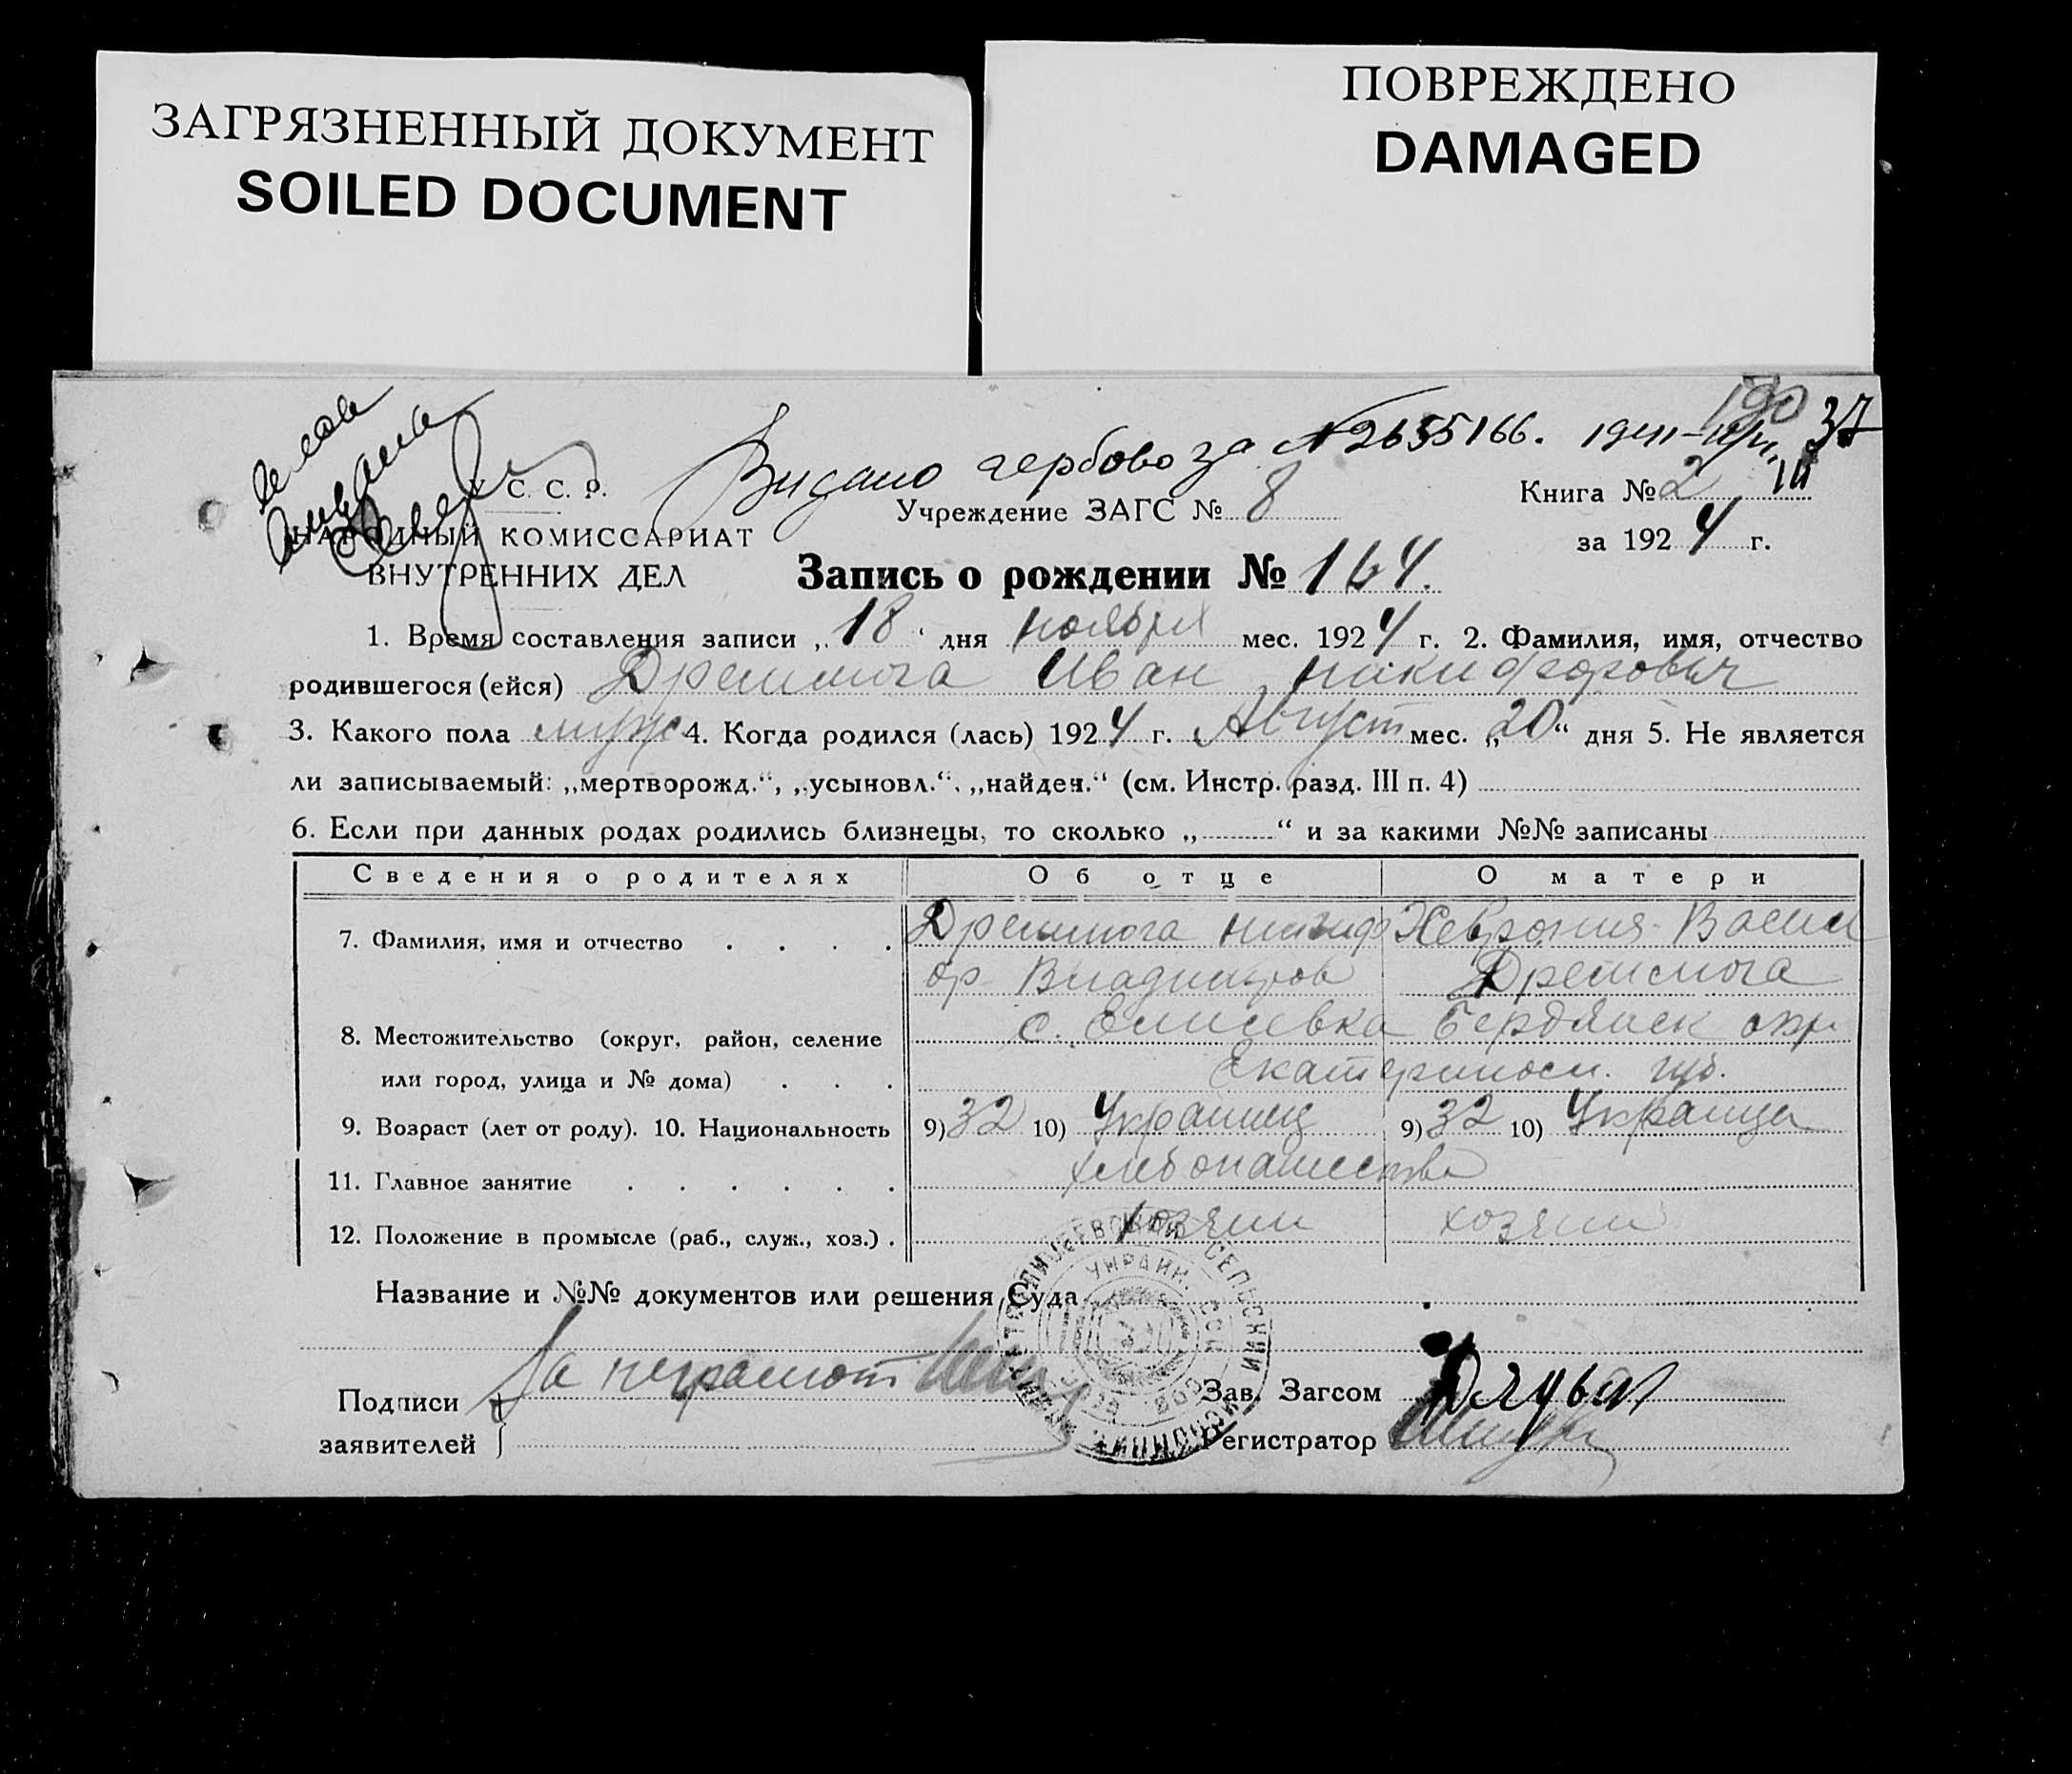 ЗАГРЯЗНЕННЫЙ ДОКУМЕНТ
SOILED DOCUMENT
ПОВРЕЖДЕНО
DAMAGED
Видано гербово за №2655166. 37
У. С. С. Р.
НАРОДНЫЙ КОМИССАРИАТ
ВНУТРЕННИХ ДЕЛ
Учреждение ЗАГС № 8
Книга № 2
за 1924 г.
Запись о рождении № 164.
1. Время составления записи „18“ дня ноября мес. 1924 г. 2. Фамилия, имя, отчество
родившегося (ейся) Дремлюга Иван Никифорович
3. Какого пола муж 4. Когда родился (лась) 1924 г. Август мес. „20“ дня 5. Не является
ли записываемый: „мертворожд.“, „усыновл.“, „найден.“ (см. Инстр. разд. III п. 4)
6. Если при данных родах родились близнецы, то сколько „ “ и за какими №№ записаны
Сведения о родителях Об отце О матери
7. Фамилия, имя и отчество Дремлюга Никиф Хеврония Васил
ор Владимиров Дремлюга
8. Местожительство (округ, район, селение с. Елисевка Бердянск окр
или город, улица и № дома) Екатериносл. губ.
9. Возраст (лет от роду). 10. Национальность 9) 32 10) Украинец 9) 32 10) Украинка
11. Главное занятие хлебопашество
12. Положение в промысле (раб., служ., хоз.) хозяин хозяин
Название и №№ документов или решения Суда
Подписи За неграмот
заявителей
Зав. Загсом
Регистратор
СЕЛЬСКИЙ
УКРАИН. ССР